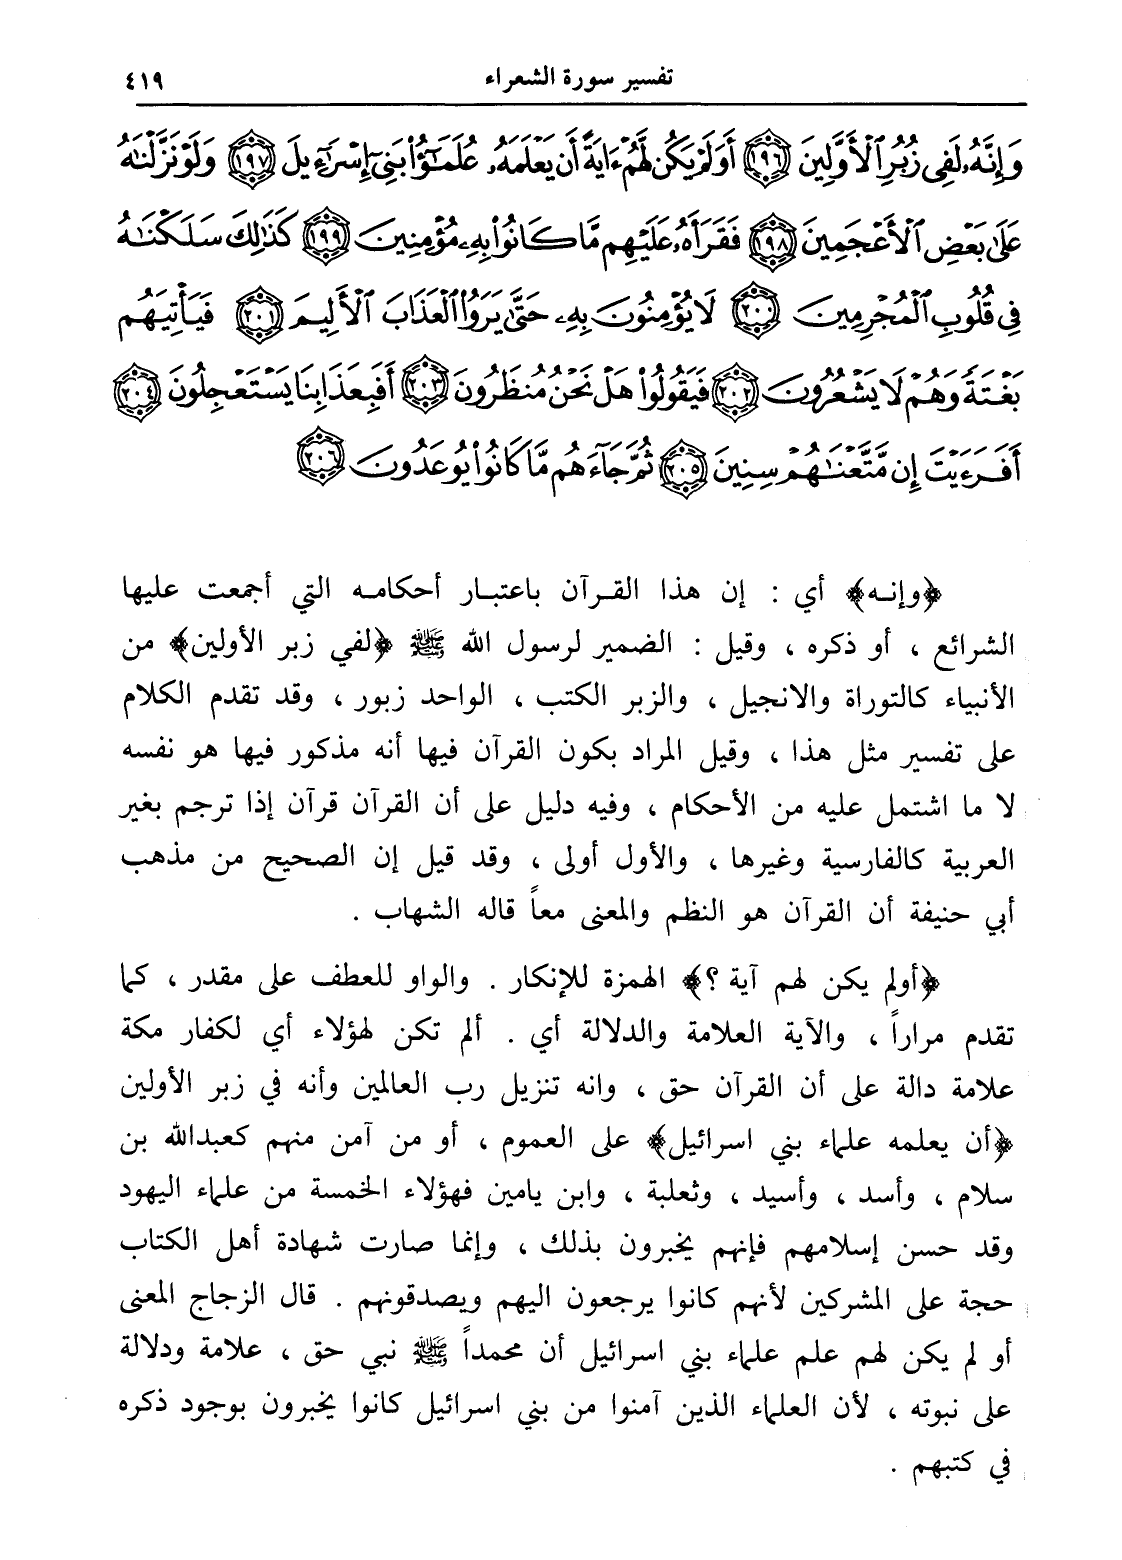 تفسير سورة الشعراء ٤١٩
وَإِنَّهُۥ لَفِى زُبُرِ ٱلْأَوَّلِينَ ١٩٦ أَوَلَمْ يَكُن لَّهُمْ ءَايَةً أَن يَعْلَمَهُۥ عُلَمَٰٓؤُا۟ بَنِىٓ إِسْرَٰٓءِيلَ ١٩٧ وَلَوْ نَزَّلْنَٰهُ
عَلَىٰ بَعْضِ ٱلْأَعْجَمِينَ ١٩٨ فَقَرَأَهُۥ عَلَيْهِم مَّا كَانُوا۟ بِهِۦ مُؤْمِنِينَ ١٩٩ كَذَٰلِكَ سَلَكْنَٰهُ
فِى قُلُوبِ ٱلْمُجْرِمِينَ ٢٠٠ لَا يُؤْمِنُونَ بِهِۦ حَتَّىٰ يَرَوُا۟ ٱلْعَذَابَ ٱلْأَلِيمَ ٢٠١ فَيَأْتِيَهُم
بَغْتَةً وَهُمْ لَا يَشْعُرُونَ ٢٠٢ فَيَقُولُوا۟ هَلْ نَحْنُ مُنظَرُونَ ٢٠٣ أَفَبِعَذَابِنَا يَسْتَعْجِلُونَ ٢٠٤
أَفَرَءَيْتَ إِن مَّتَّعْنَٰهُمْ سِنِينَ ٢٠٥ ثُمَّ جَآءَهُم مَّا كَانُوا۟ يُوعَدُونَ ٢٠٦
﴿وإنه﴾ أي : إن هذا القرآن باعتبار أحكامه التي أجمعت عليها
الشرائع ، أو ذكره ، وقيل : الضمير لرسول الله ﷺ ﴿لفي زبر الأولين﴾ من
الأنبياء كالتوراة والانجيل ، والزبر الكتب ، الواحد زبور ، وقد تقدم الكلام
على تفسير مثل هذا ، وقيل المراد بكون القرآن فيها أنه مذكور فيها هو نفسه
لا ما اشتمل عليه من الأحكام ، وفيه دليل على أن القرآن قرآن إذا ترجم بغير
العربية كالفارسية وغيرها ، والأول أولى ، وقد قيل إن الصحيح من مذهب
أبي حنيفة أن القرآن هو النظم والمعنى معاً قاله الشهاب .
﴿أولم يكن لهم آية ؟﴾ الهمزة للإنكار . والواو للعطف على مقدر ، كما
تقدم مراراً ، والآية العلامة والدلالة أي . ألم تكن لهؤلاء أي لكفار مكة
علامة دالة على أن القرآن حق ، وانه تنزيل رب العالمين وأنه في زبر الأولين
﴿أن يعلمه علماء بني اسرائيل﴾ على العموم ، أو من آمن منهم كعبدالله بن
سلام ، وأسد ، وأسيد ، وثعلبة ، وابن يامين فهؤلاء الخمسة من علماء اليهود
وقد حسن إسلامهم فإنهم يخبرون بذلك ، وإنما صارت شهادة أهل الكتاب
حجة على المشركين لأنهم كانوا يرجعون اليهم ويصدقونهم . قال الزجاج المعنى
أو لم يكن لهم علم علماء بني اسرائيل أن محمداً ﷺ نبي حق ، علامة ودلالة
على نبوته ، لأن العلماء الذين آمنوا من بني اسرائيل كانوا يخبرون بوجود ذكره
في كتبهم .